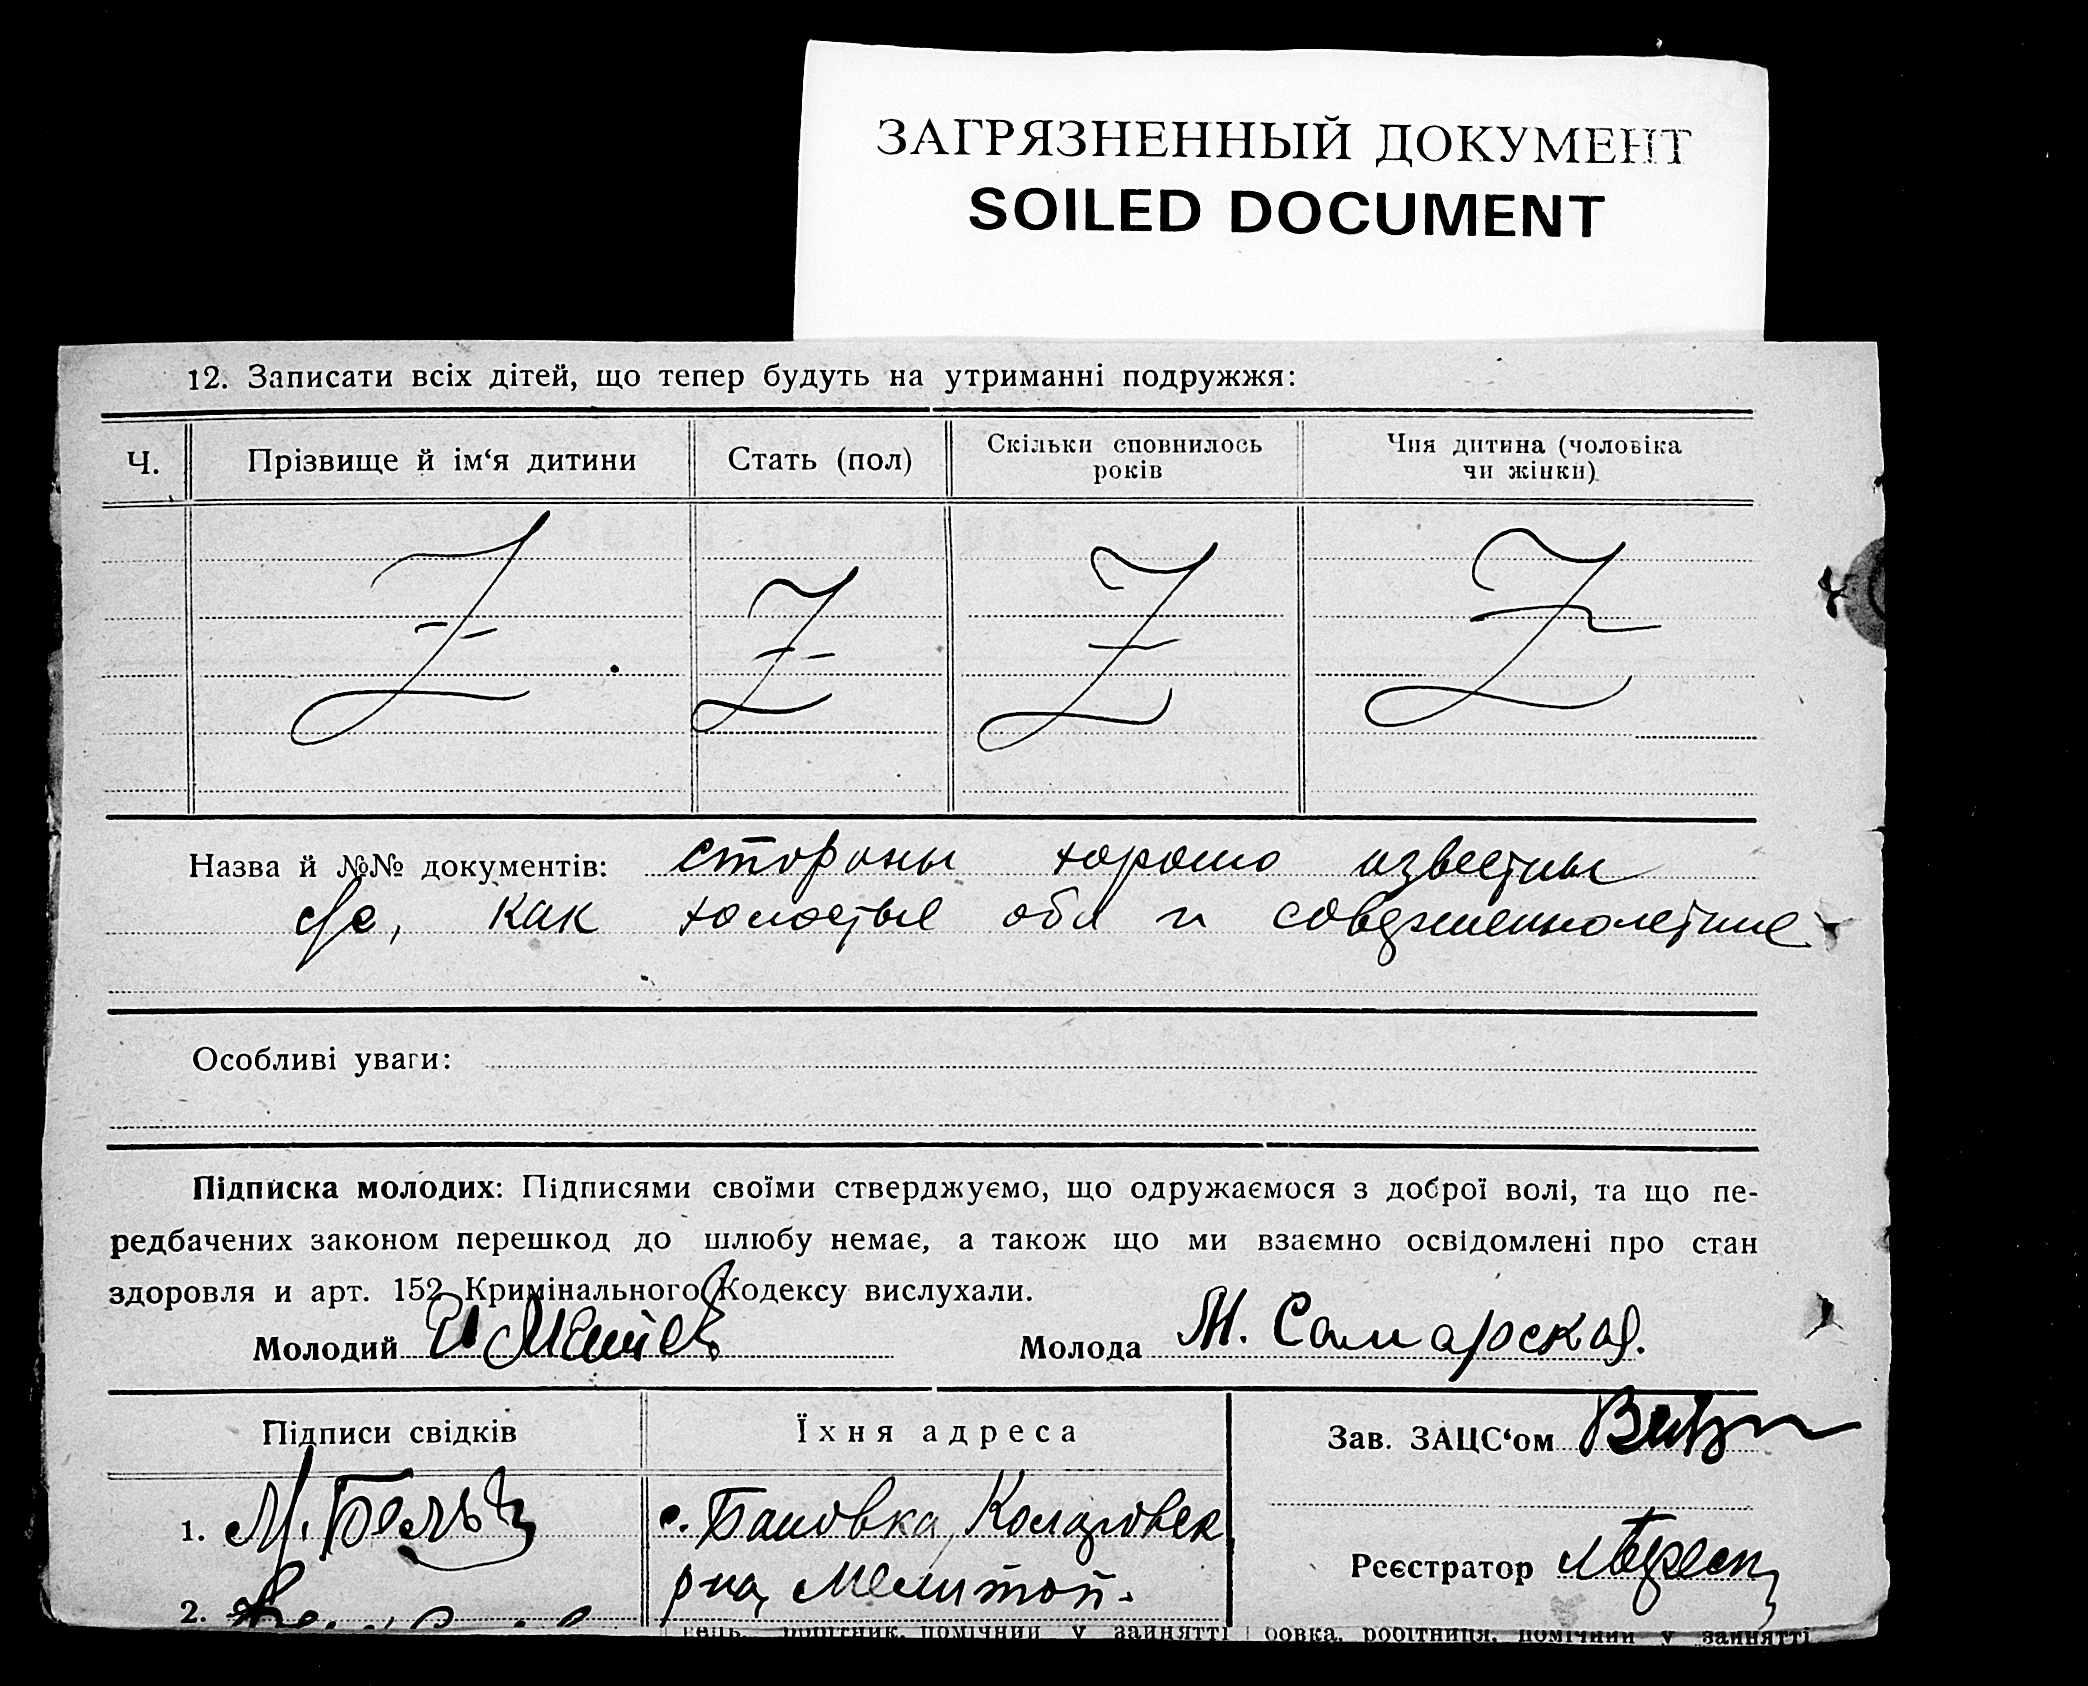 ЗАГРЯЗНЕННЫЙ ДОКУМЕНТ
SOILED DOCUMENT
12. Записати всіх дітей, що тепер будуть на утриманні подружжя:
Ч. Прізвище й ім‘я дитини Стать (пол) Скільки сповнилось років Чия дитина (чоловіка чи жінки)
Z Z Z Z
Назва й №№ документів: стороны хорошо известны
как холостые оба и совершеннолетние
Особливі уваги:
Підписка молодих: Підписями своїми стверджуємо, що одружаємося з доброї волі, та що пе-
редбачених законом перешкод до шлюбу немає, а також що ми взаємно освідомлені про стан
здоровля и арт. 152 Кримінального Кодексу вислухали.
Молодий Молода М. Самарская.
Підписи свідків Їхня адреса Зав. ЗАЦС‘ом
1. с. Бановка,
2. рна, Мелитоп. Реєстратор
робітник, помічний у занятті робітниця, помічний у занятті